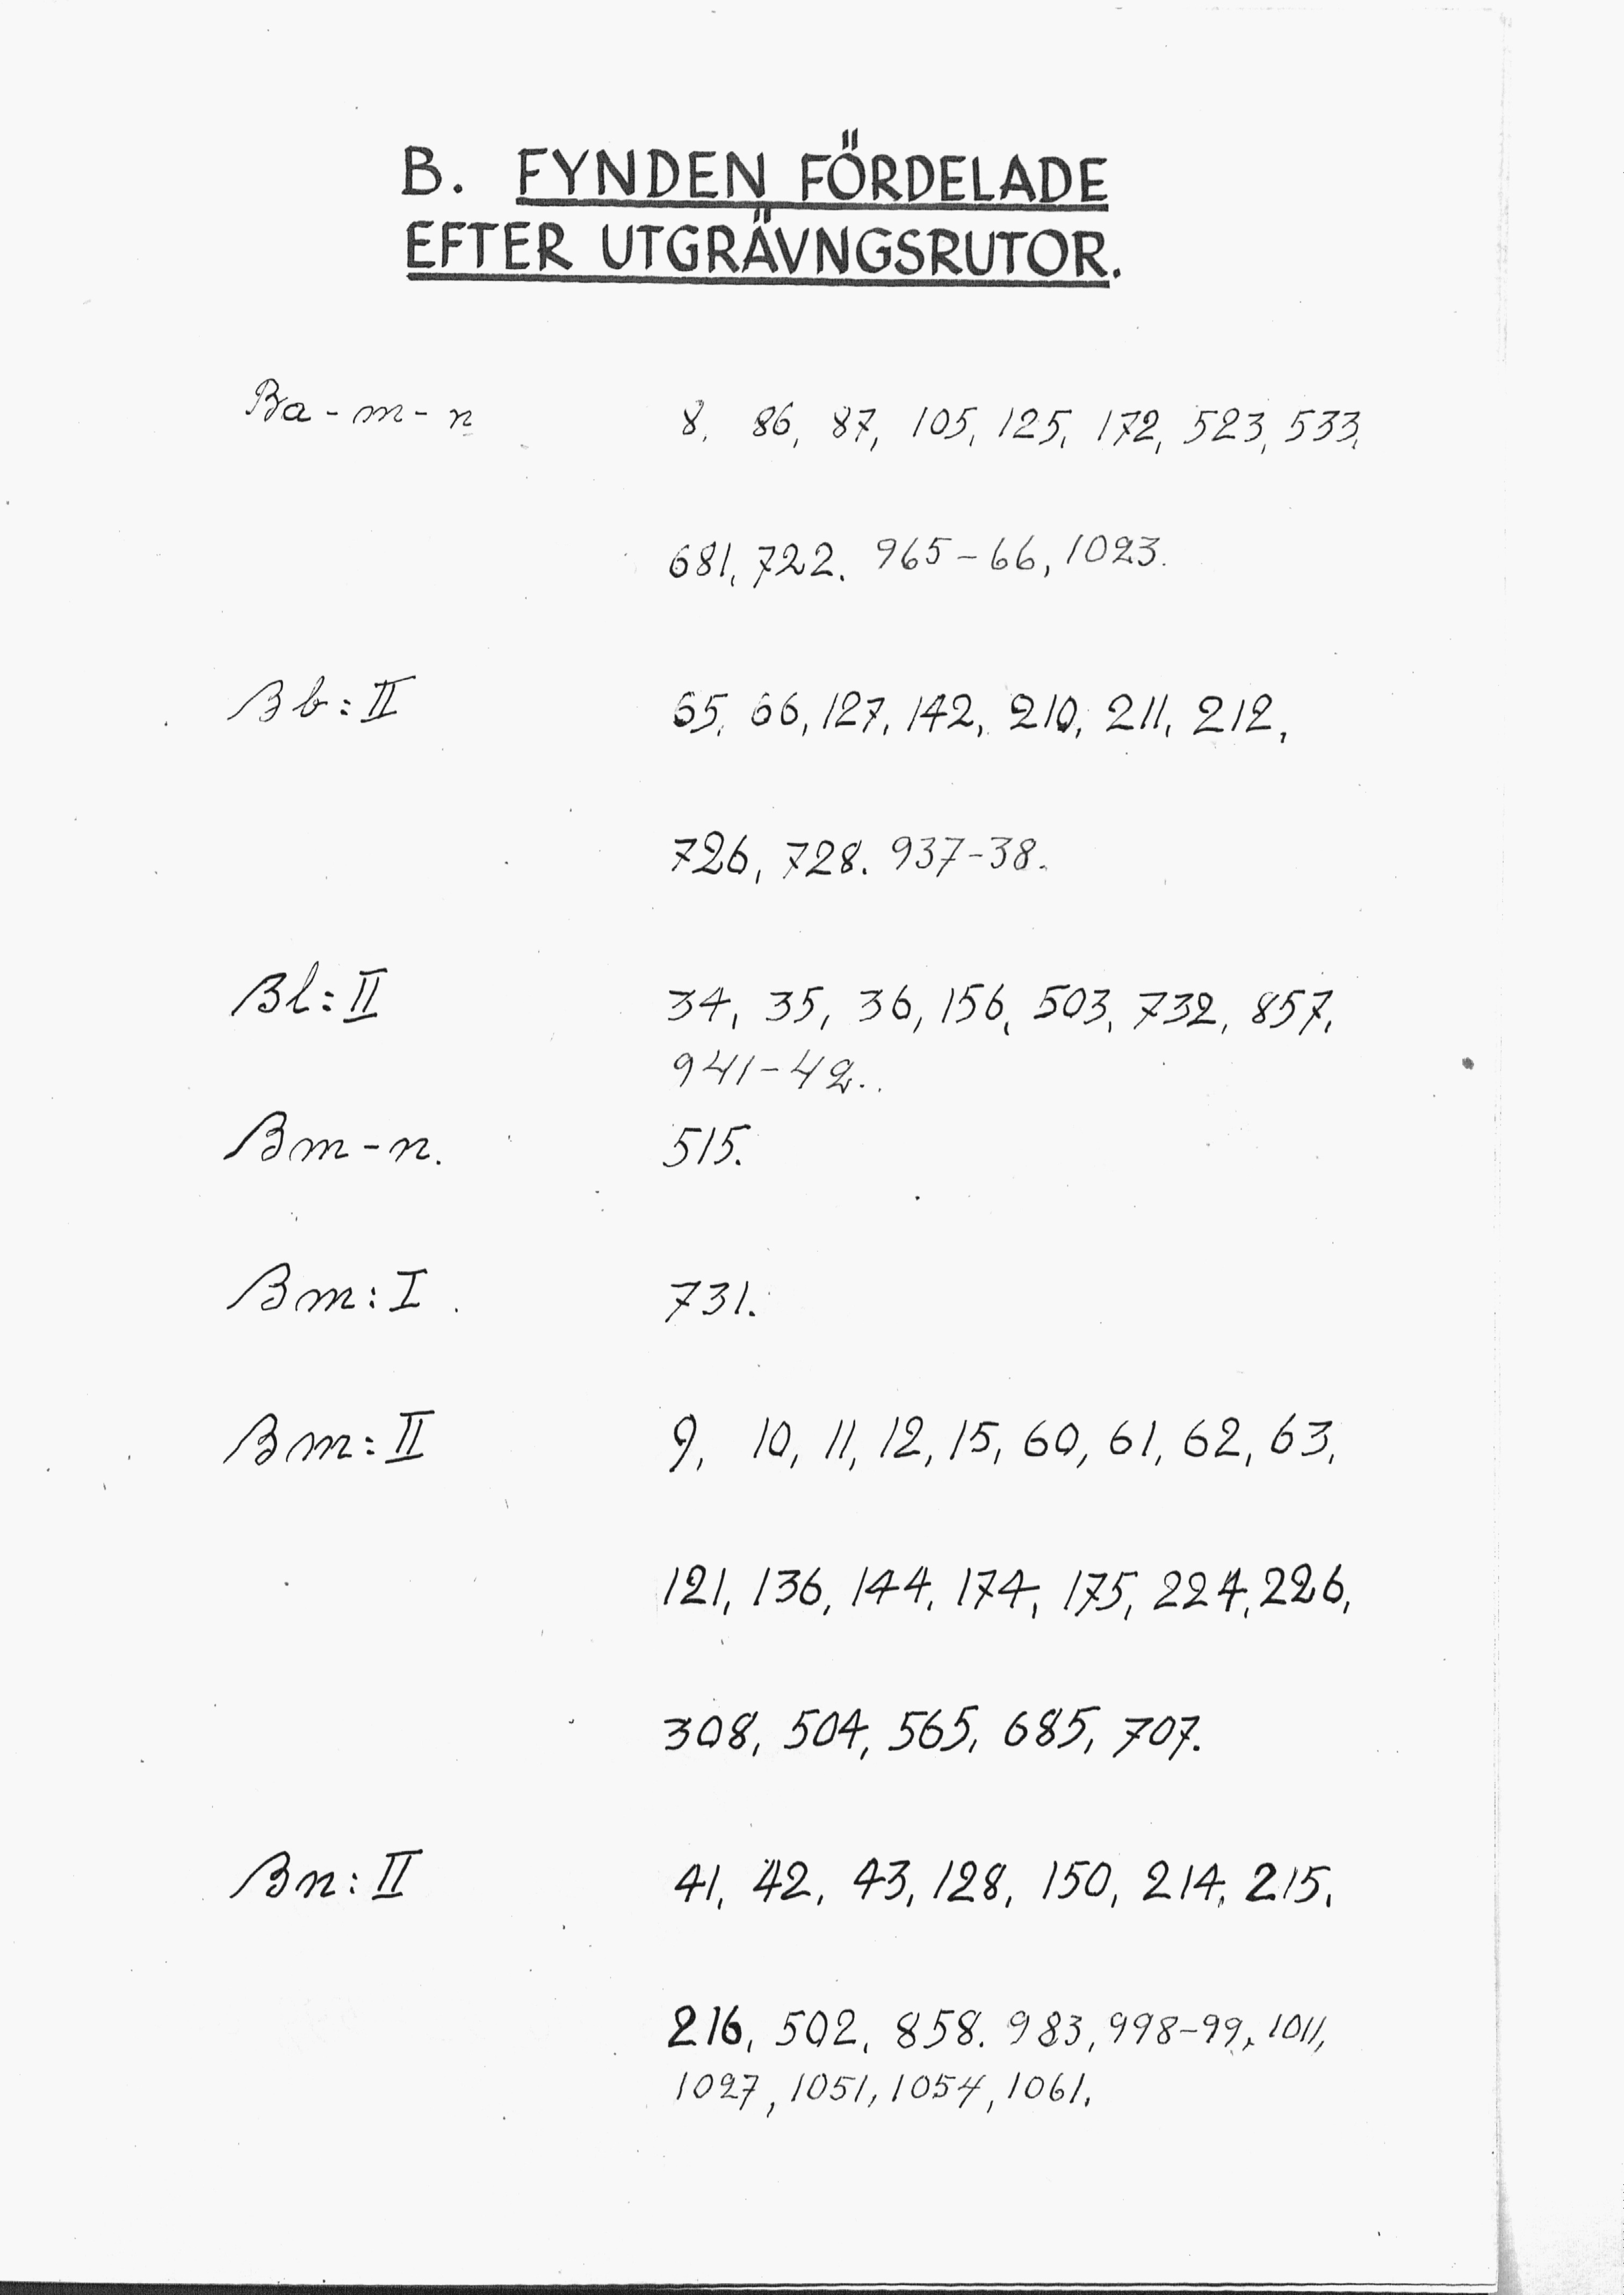 B. FYNDEN FÖRDELADE
EFTER UTGRÄVNGSRUTOR.
Ba - m - n 8, 86, 87, 105, 125, 172, 523, 533,
681, 722. 965-66, 1023.
Bb: II 65, 66, 127, 142, 210, 211, 212,
726, 728. 937-38.
Bl: II 34, 35, 36, 156, 503, 732, 857,
941-42.
Bm-n. 515.
Bm: I. 731.
Bm: II 9, 10, 11, 12, 15, 60, 61, 62, 63,
121, 136, 144, 174, 175, 224, 226,
308, 504, 565, 685, 707.
Bn: II 41, 42, 43, 128, 150, 214, 215,
216, 502, 858. 983, 998-99, 1011,
1027, 1051, 1054, 1061.